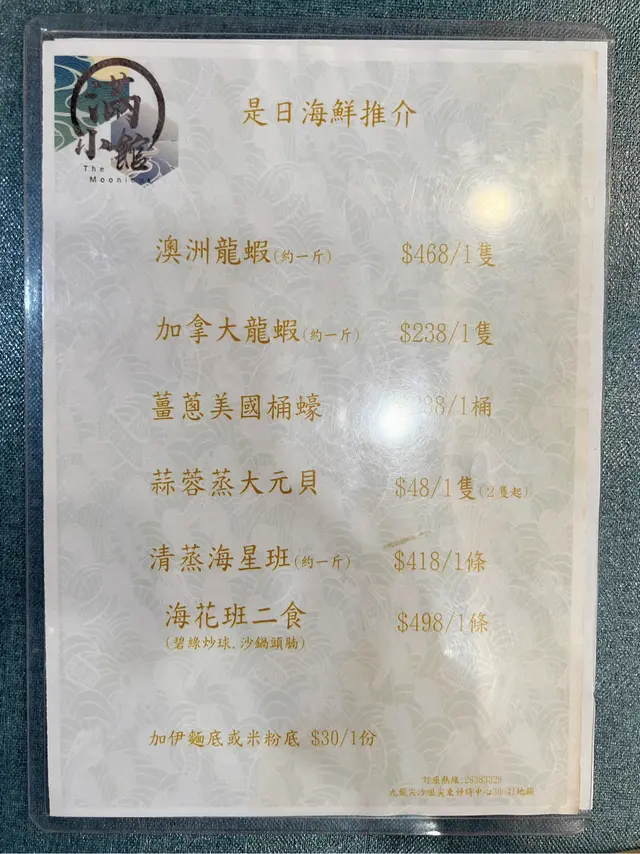 滿
小館
The
是日海鮮推介
澳洲龍蝦(約一斤) $468/1隻
加拿大龍蝦(約一斤) $238/1隻
薑蔥美國桶蠔 88/1桶
蒜蓉蒸大元貝 $48/1隻(2隻起)
清蒸海星班(約一斤) $418/1條
海花班二食 $498/1條
(碧綠炒球.沙鍋頭腩)
加伊麵底或米粉底 $30/1份
訂座熱線:26383329
九龍尖沙咀尖東好時中心